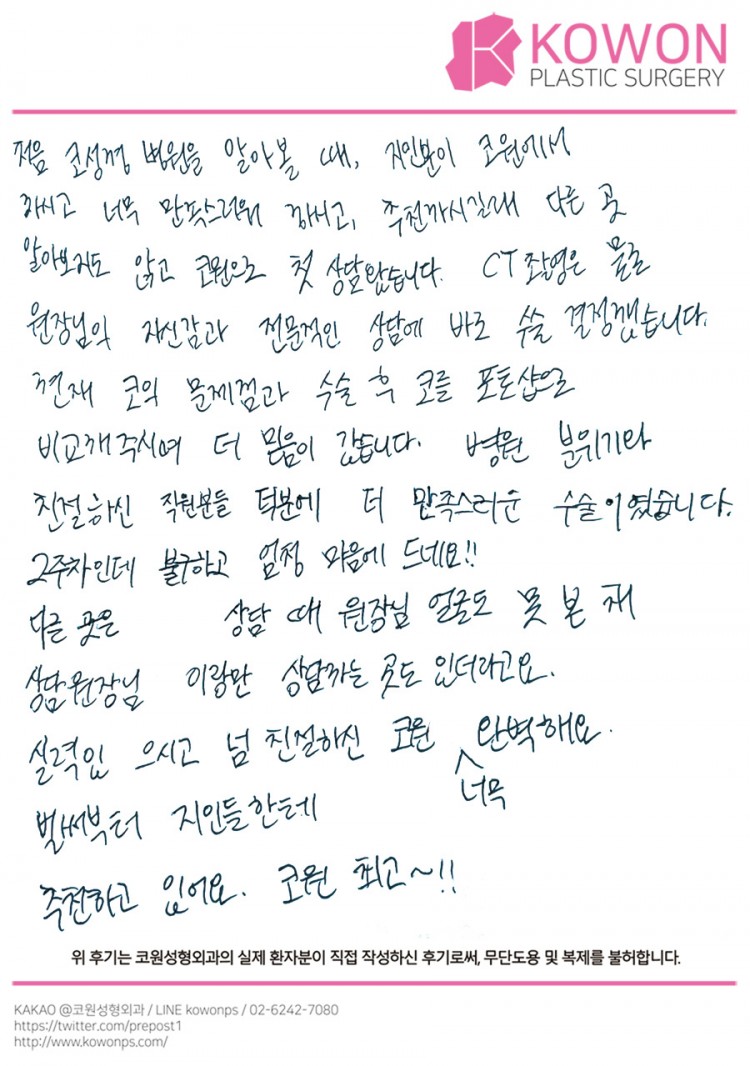 KOWON
PLASTIC SURGERY
처음 코성형 병원을 알아볼 때, 지인분이 코원에서
하시고 너무 만족스러워 하시고, 추천하시길래 다른 곳
알아보지도 않고 코원으로 첫 상담왔습니다. CT촬영은 물론
원장님의 자신감과 전문적인 상담에 바로 수술 결정했습니다.
현재 코의 문제점과 수술 후 코를 포토샵으로
비교해주시며 더 믿음이 갔습니다. 병원 분위기와
친절하신 직원분들 덕분에 더 만족스러운 수술이였습니다.
2주차인데 불구하고 엄청 마음에 드네요!!
다른 곳은 상담 때 원장님 얼굴도 못 본 채
상담원장님 이랑만 상담하는 곳도 있더라고요.
실력있 으시고 넘 친절하신 코원 완벽해요.
너무
벌써부터 지인들한테
추천하고 있어요. 코원 최고~!!
위 후기는 코원성형외과의 실제 환자분이 직접 작성하신 후기로써, 무단도용 및 복제를 불허합니다.
KAKAO @코원성형외과 / LINE kowonps / 02-6242-7080
https://twitter.com/prepost1
http://www.kowonps.com/